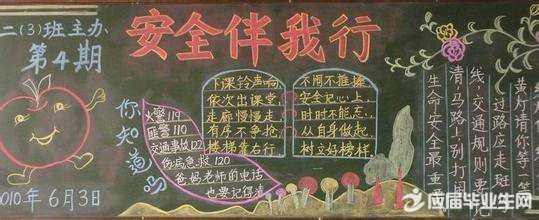 二(3)班主办
第4期
安全伴我行
你知道吗
火警119
匪警110
交通事故122
伤病急救120
爸妈老师的电话
也要记得清
下课铃声响
依次出课堂
走廊慢慢走
有序不争抢
楼梯靠右行
不推搡
安全记心上,
时时不能忘,
从自身做起,
树立好榜样
黄灯请你等一
过路应走斑
线,交通规则要
清,马路上别打闹
生命安全最重
010年6月3日
应届毕业生网